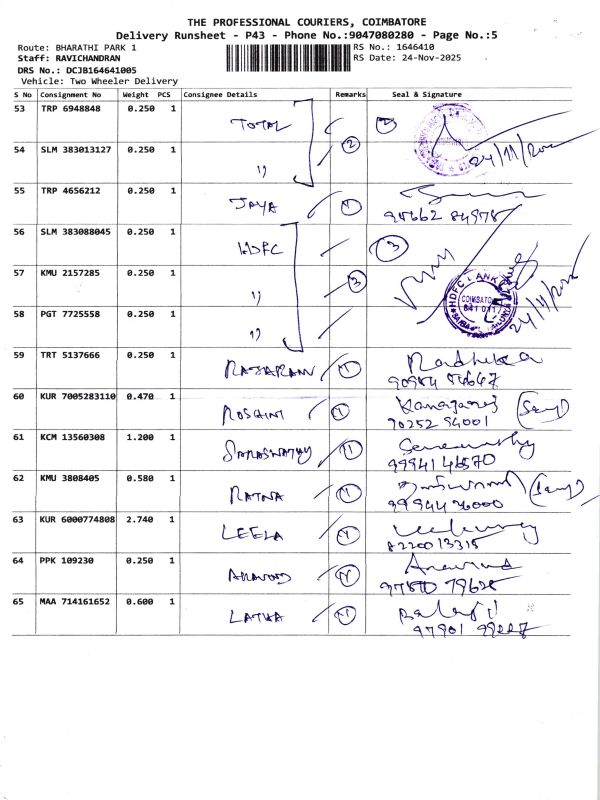 THE PROFESSIONAL COURIERS, COIMBATORE
Delivery Runsheet - P43 - Phone No.:9047080280 - Page No.:5
Route: BHARATHI PARK 1 RS No.: 1646410
Staff: RAVICHANDRAN RS Date: 24-Nov-2025
DRS No.: DCJB164641005
Vehicle: Two Wheeler Delivery
S No Consignment No Weight PCS Consignee Details Remarks Seal & Signature
53 TRP 6948848 0.250 1 TOTAL 2
54 SLM 383013127 0.250 1 " 2 24/11/
55 TRP 4656212 0.250 1 JAYA 1
56 SLM 383088045 0.250 1 HDFC 3
57 KMU 2157285 0.250 1 " 3 HDFC BANK COIMBATORE 24/11/
58 PGT 7725558 0.250 1 "
59 TRT 5137666 0.250 1 RAJARAM 1 Radhika
60 KUR 7005283110 0.470 1 ROSHINI 1 Kanagaraj
90252 94001
61 KCM 13560308 1.200 1 SARASWATHY 1
99941 46570
62 KMU 3808405 0.580 1 RATNA 1
99944 26000
63 KUR 6000774808 2.740 1 LEELA 1
8220013315
64 PPK 109230 0.250 1 ARAVIND 1 Aravind
65 MAA 714161652 0.600 1 LATHA 1 Balaji